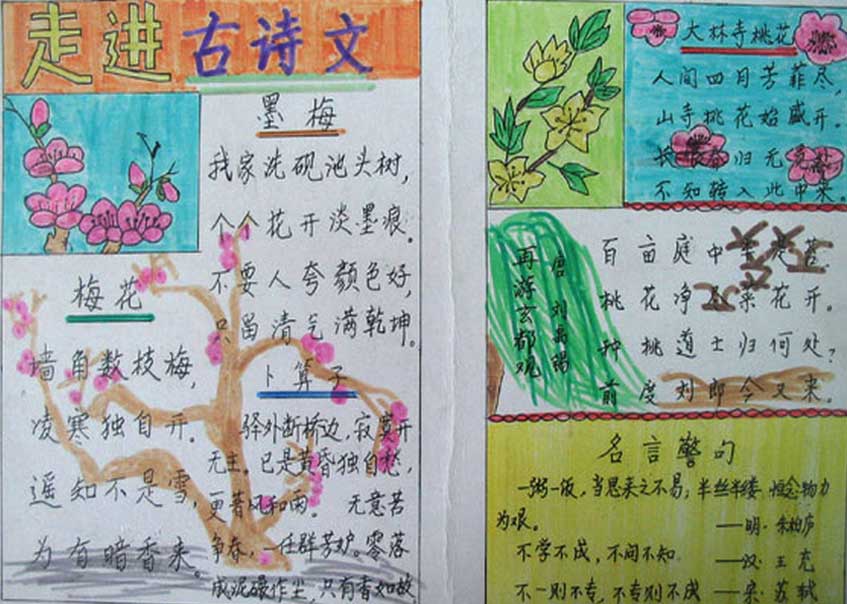 走进古诗文
墨梅
我家洗砚池头树，
个个花开淡墨痕。
不要人夸颜色好，
只留清气满乾坤。
梅花
墙角数枝梅，
凌寒独自开。
遥知不是雪，
为有暗香来。
卜算子
驿外断桥边，寂寞开
无主。已是黄昏独自愁，
更著风和雨。 无意苦
争春，一任群芳妒。零落
成泥碾作尘，只有香如故
大林寺桃花
人间四月芳菲尽，
山寺桃花始盛开。
长恨春归无觅处
不知转入此中来。
再游玄都观
唐 刘禹锡
百亩庭中半是苔
桃花净尽菜花开。
种桃道士归何处？
前度刘郎今又来。
名言警句
一粥一饭，当思来之不易；半丝半缕，恒念物力
为艰。 ——明·朱柏庐
不学不成，不问不知。 ——汉·王充
不一则不专，不专则不成 ——宋·苏轼